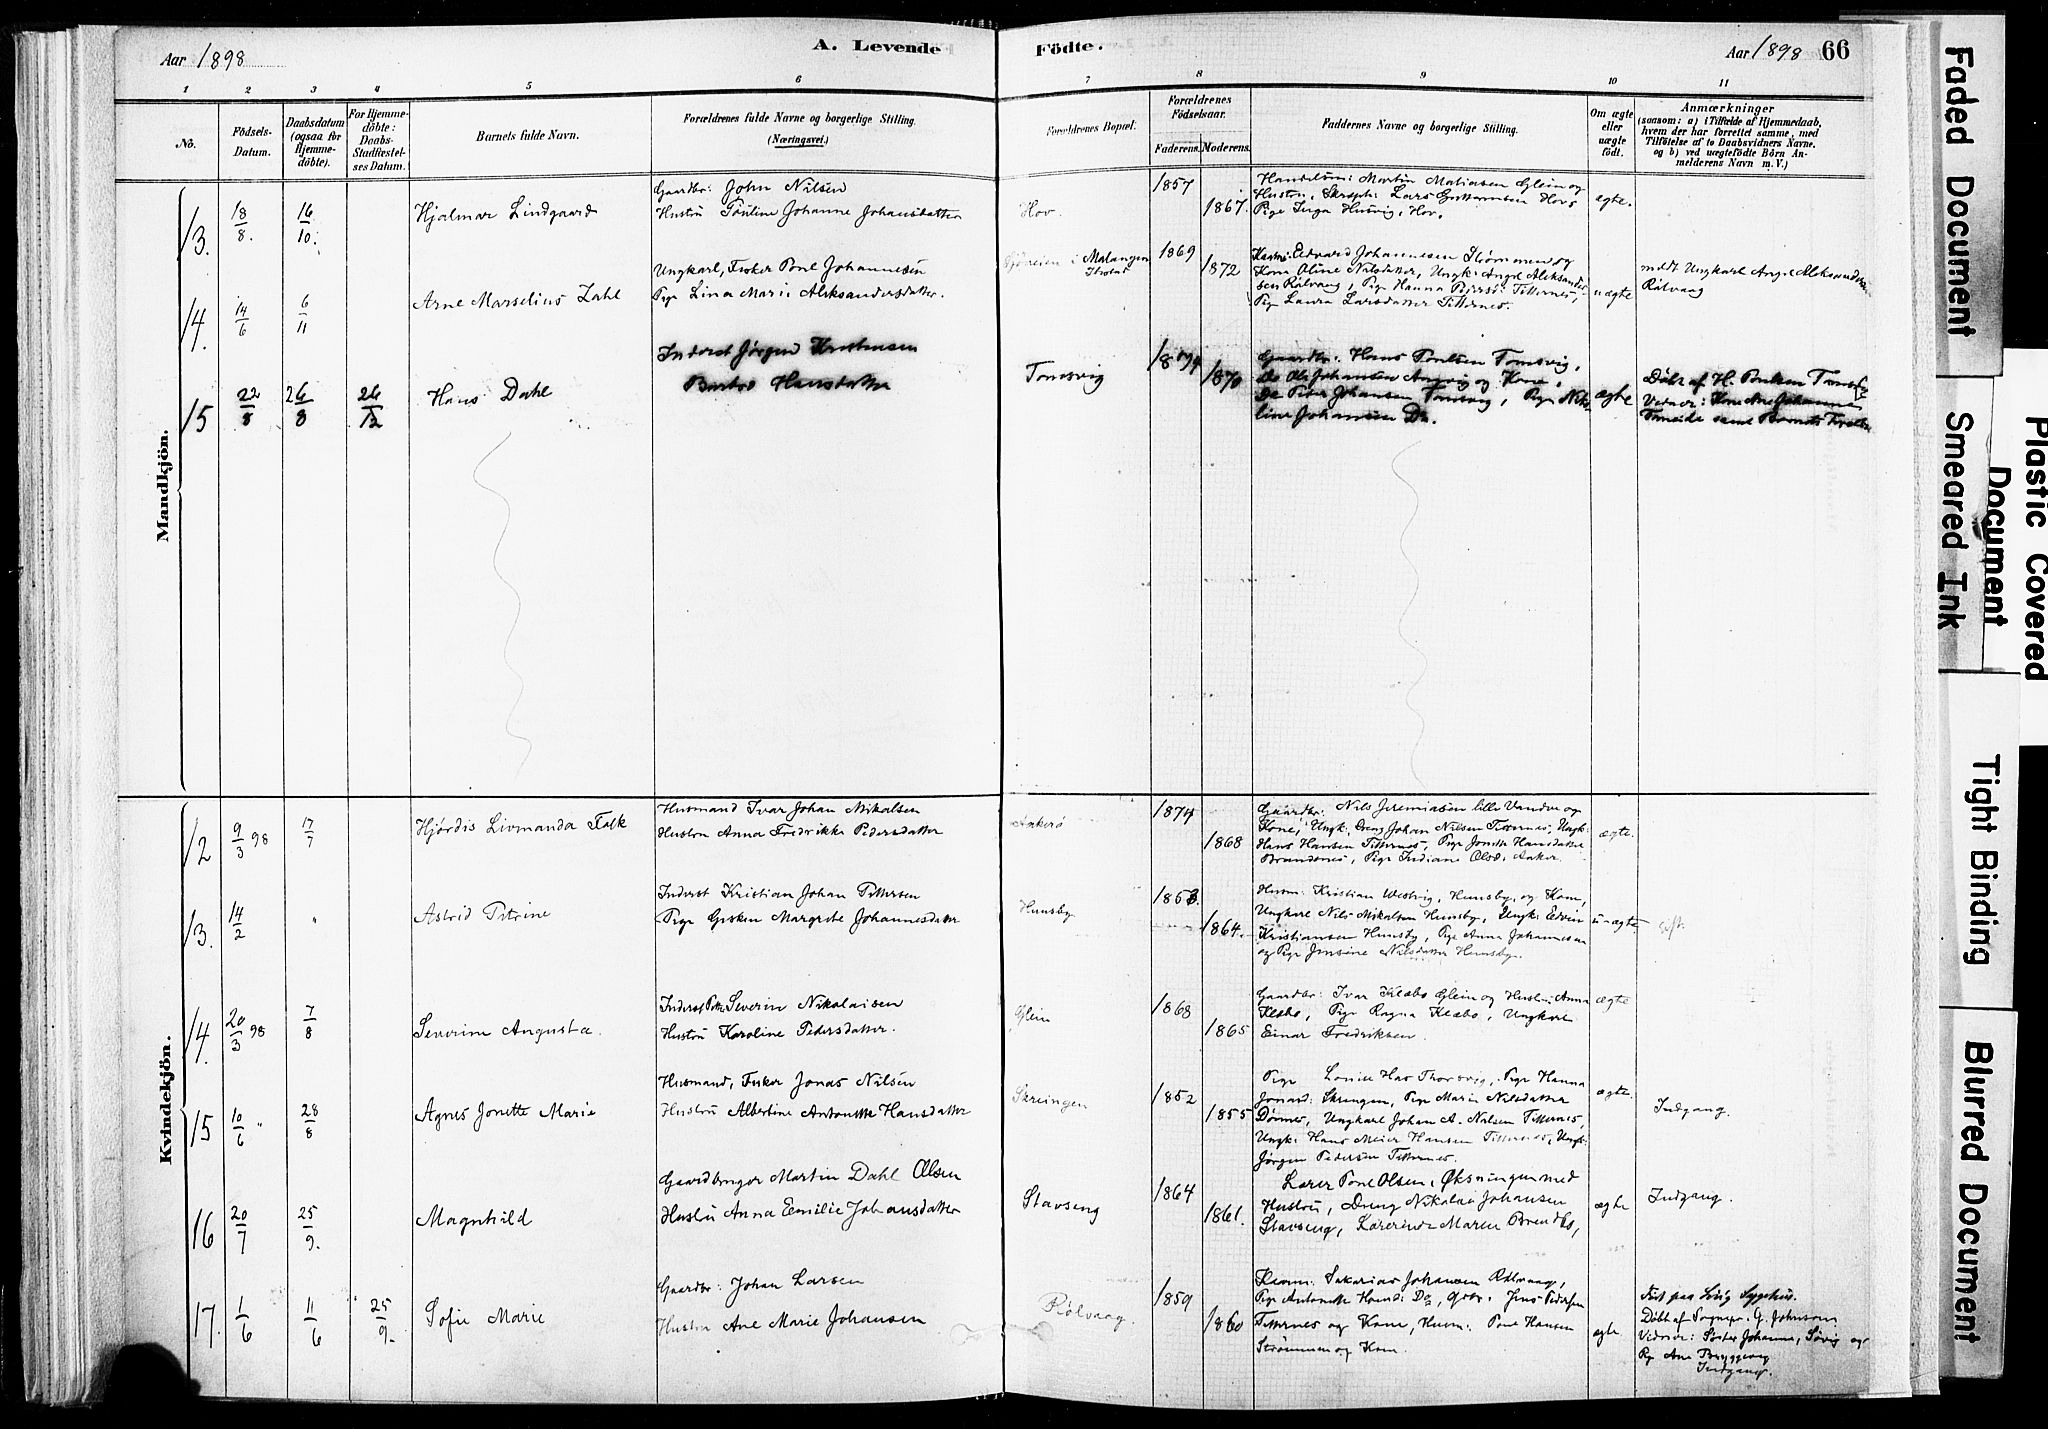 Aar 1898
A. Levende Födte.
Aar 1898 66
1 2 3 4 5 6 7 8 9 10 11
No.
Födsels-
Datum.
Daabsdatum
(ogsaa for
Hjemme-
döbte).
For Hjemme-
döbte:
Daabs-
Stadfæstel-
ses Datum.
Barnets fulde Navn.
Forældrenes fulde Navne og borgerlige Stilling.
(Næringsvei.)
Forældrenes Bopæl.
Forældrenes
Födselsaar.
Faderens. Moderens.
Faddernes Navne og borgerlige Stilling.
Om ægte
eller
uægte
født.
Anmærkninger
(saasom: a) i Tilfælde af Hjemmedaab,
hvem der har forrettet samme, med
Tilföielse af to Daabsvidners Navne,
og b) ved uægtefödte Börn An-
melderens Navn m. V.)
Mandkjön.
13. 18/8. 16/10. Hjalmar Lindgaard
Gaardbr: John Nilsen
Hustru Pauline Johanne Johansdatter
Hov.
1857
1867.
Martin Matiasen Glein og
Hustru, Lars Hov
Pige Inga Husvig, Hov.
ægte.
14. 14/6 6/11 Arne Marselius Zahl
Ungkarl, Fisker Pone Johannesen
Pige Lina Marie Aleksandersdatter.
i Malangen
1869
1872
Edvard Johannesen Strømmen og
Kone Oline Nilsdatter, Ungk: Angel Aleksander-
sen Rølvaag, Pige Hanna Titternes,
Pige Laura Larsdatter Titternes.
uægte
meldt Ungkarl Angel Aleksandersen
Rölvaag
15 22/8 26/8 26/12 Hans Dahl
Inderst Jørgen Kristensen
Hansdatter
Tomsvig
1874
1870
Gaardbr: Hans Poulsen Tomsvig,
Do Ole Johansen og Kone,
Do Peter Johansen Tomsvig, Pige Niko-
line Johansen Do.
ægte
Döbt af H. Poulsen Tomsvig
Vidner: Kone Ane Johanne
samt Barnets Forældre
Kvindekjön.
12 9/3 98 17/7 Hjørdis Livmanda Falk
Husmand Ivar Johan Mikalsen
Hustru Anna Fredrikke Pedersdatter
1874
1868
Gaardbr: Nils Jeremiasen lille Vandve og
Kone, Ungk. Dreng Johan Nilsen Titternes, Ungk:
Hans Hansen Titternes, Pige Jonette Hansdatter
Brandsnes, Pige Indiane
ægte.
13. 14/2 " Astrid Petrine
Inderst Kristian Johan Pettersen
Pige Gjesken Margrete Johannesdatter
Hunsby
1853.
1864.
Husm: Kristian Westvig, Hunsby, og Kone,
Ungkarl Nils Mikalsen Hunsby, Ungk: Edvin
Kristiansen Hunsby, Pige Anna Johannesen
og Pige Jensine Nilsdatter Hunsby.
uægte
gift
14. 20/3 98 7/8 Severine Augusta.
Inderst Petter Severin Nikolaisen
Hustru Karoline Pedersdatter.
Glein
1868
1865
Gaardbr: Ivar Klæbo Glein og Hustru Anna
Klæbo, Pige Ragna Klæbo, Ungkarl
Einar Fredriksen.
ægte
15 10/6 " 28/8 Agnes Jonette Marie
Husmand, Fisker Jonas Nilsen
Hustru Albertine Antonette Hansdatter
Skreingen
1852
1855
Pige Louise Thorsvig, Pige Hanna
Skreingen, Pige Marie Nilsdatter
Dönnes, Ungkarl Johan A. Nilsen Titternes,
Ungk: Hans Meier Hansen Titternes, Ungk:
Jörgen Pedersen Titternes.
ægte.
Indgang.
16 20/7 25/9. Magnhild
Gaardbruger Martin Dahl Olsen
Hustru Anna Emilie Johansdatter
Stavseng
1864
1861.
Lærer Pone Olsen, Øksningen med
Hustru, Dreng Nikolai Johansen
Stavseng, Lærerinde Maren
ægte
Indgang.
17. 1/6 11/6 25/9. Sofie Marie
Gaardbr: Johan Larsen
Hustru Ane Marie Johansen
Rølvaag.
1859
1860
Sakarias Johansen Rølvaag,
Pige Antonette Do, Gbr: Jens Pedersen
Titternes og Kone, Husm: Pone Hansen
Strømmen og Kone.
ægte
Födt paa Sövig Sygehus.
Döbt af Sognepr. G. Johnson
Vidner: Søster Johanne, Sövig og
Pige Ane
Indgang.
Faded Document
Smeared Ink
Plastic Covered
Document
Tight Binding
Blurred Document